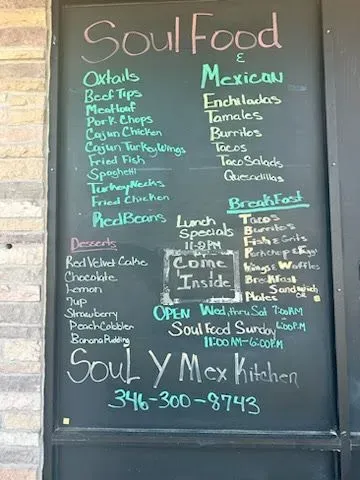 Soul Food
&
Mexican
Oxtails
Beef Tips
Meatloaf
Pork Chops
Cajun Chicken
Cajun Turkey Wings
Fried Fish
Spaghetti
Turkey Necks
Fried Chicken
Red Beans
Enchiladas
Tamales
Burritos
Tacos
Taco Salads
Quesadillas
Breakfast
Tacos
Burritos
Fish & Grits
Porkchop & Eggs
Wings & Waffles
Breakfast
Sandwich
Lunch
Specials
11-2PM
Come
Inside
Desserts
Red Velvet Cake
Chocolate
Lemon
7up
Strawberry
Peach Cobbler
Banana Pudding
OPEN Wed, thru Sat 7:00AM
6:00P.M
Soul Food Sunday
11:00AM-6:00P.M
Soul Y Mex Kitchen
346-300-8743